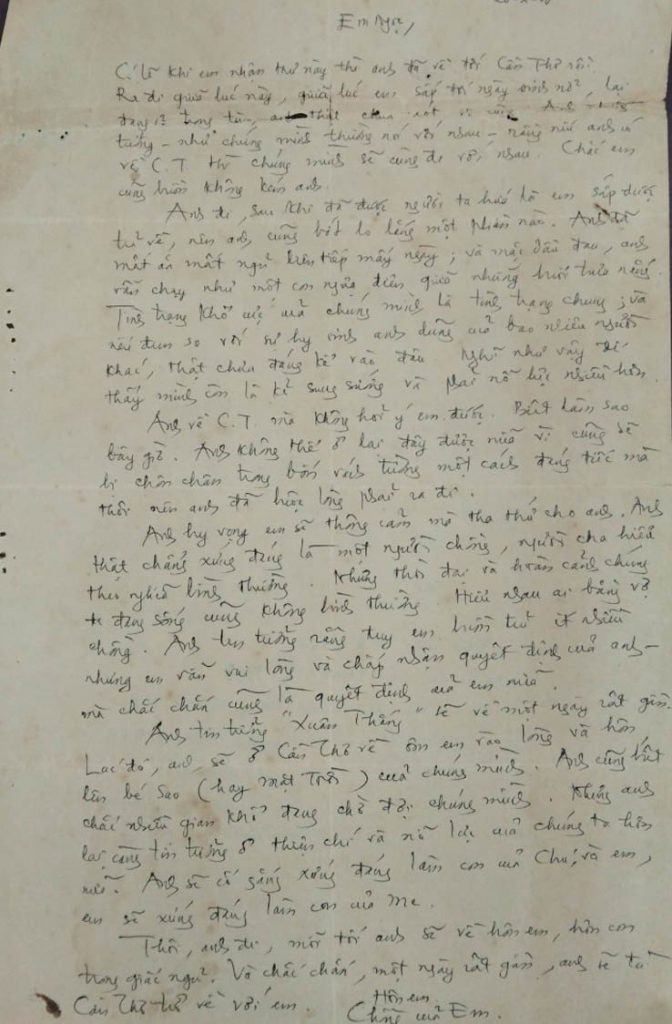 Em Ngọc,
Có lẽ khi em nhận thư này thì anh đã về tới Cần Thơ rồi.
Ra đi giữa lúc này, giữa lúc em sắp tới ngày sinh nở, lại
đang ở trong tù, anh thật chua xót vô cùng. Anh
tưởng - như chúng mình thường nói với nhau - rằng nếu anh có
về C.T. thì chúng mình sẽ cùng đi với nhau. Chắc em
cũng buồn không kém anh.
Anh đi, sau khi đã được người ta hứa là em sắp được
trở về, nên anh cũng bớt lo lắng một phần nào. Anh đã
mất ăn mất ngủ liên tiếp mấy ngày; và mặc dầu đau, anh
vẫn chạy như một con ngựa điên giữa những buổi trưa nắng.
Tình trạng khổ cực của chúng mình là tình trạng chung; và
nếu đem so với sự hy sinh anh dũng của bao nhiêu người
khác, thật chưa đáng kể vào đâu. Nghĩ như vậy để
thấy mình còn là kẻ sung sướng và phải nỗ lực nhiều hơn.
Anh về C.T. mà không hỏi ý em được. Biết làm sao
bây giờ. Anh không thể ở lại đây được nữa vì cũng sẽ
bị chôn chân trong bốn vách tường một cách đáng tiếc mà
thôi nên anh đã buộc lòng phải ra đi.
Anh hy vọng em sẽ thông cảm mà tha thứ cho anh. Anh
thật chẳng xứng đáng là một người chồng, người cha hiểu
theo nghĩa bình thường. Nhưng thời đại và hoàn cảnh chúng
ta đang sống cũng không bình thường. Hiểu nhau ai bằng vợ
chồng. Anh tin tưởng rằng tuy em buồn tủi ít nhiều
nhưng em vẫn vui lòng và chấp nhận quyết định của anh -
mà chắc chắn cũng là quyết định của em nữa.
Anh tin tưởng "Xuân Thắng" sẽ về một ngày rất gần.
Lúc đó, anh sẽ ở Cần Thơ về ôm em vào lòng và hôn
lên bé Sao (hay Mặt Trời) của chúng mình. Anh cũng biết
chắc nhiều gian khổ đang chờ đợi chúng mình. Nhưng anh
lại càng tin tưởng ở thiện chí và nỗ lực của chúng ta hơn
nữa. Anh sẽ cố gắng xứng đáng làm con của Chú, và em,
em sẽ xứng đáng làm con của Mẹ.
Thôi, anh đi, mỗi tối anh sẽ về hôn em, hôn con
trong giấc ngủ. Và chắc chắn, một ngày rất gần, anh sẽ từ
Cần Thơ trở về với em.
Hôn em
Chồng của Em.